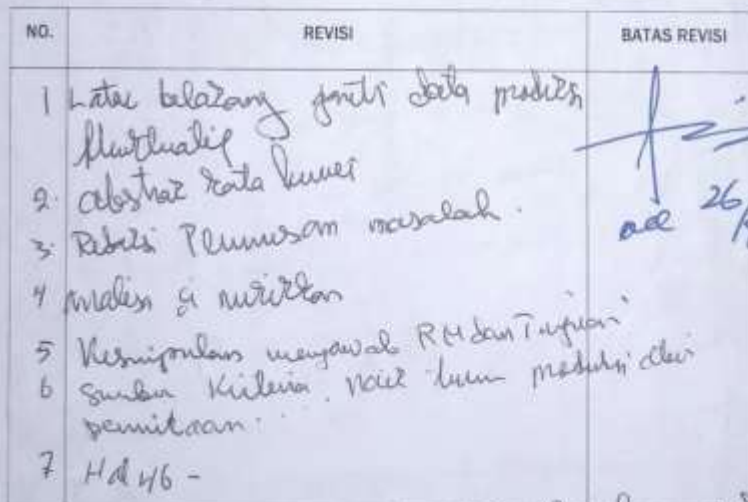 NO. REVISI BATAS REVISI
1 Latar belakang ganti data produksi
fluktuatif
2. abstrak kata kunci
3. Redaksi Rumusan masalah.
4 analisa di
5 Kesimpulan menjawab RM dan Tujuan
6 Sumber Kriteria naik turun produksi dan
permintaan.
7 Hal 46 -
acc 26